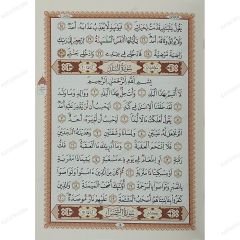 يَقُولُ يَٰلَيْتَنِي قَدَّمْتُ لِحَيَاتِي ۝ فَيَوْمَئِذٍ لَّا يُعَذِّبُ عَذَابَهُۥٓ أَحَدٌ ۝
وَلَا يُوثِقُ وَثَاقَهُۥٓ أَحَدٌ ۝ يَٰٓأَيَّتُهَا ٱلنَّفْسُ ٱلْمُطْمَئِنَّةُ ۝ ٱرْجِعِيٓ
إِلَىٰ رَبِّكِ رَاضِيَةً مَّرْضِيَّةً ۝ فَٱدْخُلِي فِي عِبَٰدِي ۝ وَٱدْخُلِي جَنَّتِي ۝
سُورَةُ الْبَلَدِ
بِسْمِ ٱللَّهِ ٱلرَّحْمَٰنِ ٱلرَّحِيمِ
لَآ أُقْسِمُ بِهَٰذَا ٱلْبَلَدِ ۝ وَأَنتَ حِلٌّۢ بِهَٰذَا ٱلْبَلَدِ ۝ وَوَالِدٍ وَمَا وَلَدَ ۝
لَقَدْ خَلَقْنَا ٱلْإِنسَٰنَ فِي كَبَدٍ ۝ أَيَحْسَبُ أَن لَّن يَقْدِرَ عَلَيْهِ أَحَدٌ ۝
يَقُولُ أَهْلَكْتُ مَالًا لُّبَدًا ۝ أَيَحْسَبُ أَن لَّمْ يَرَهُۥٓ أَحَدٌ ۝ أَلَمْ
نَجْعَل لَّهُۥ عَيْنَيْنِ ۝ وَلِسَانًا وَشَفَتَيْنِ ۝ وَهَدَيْنَٰهُ ٱلنَّجْدَيْنِ ۝
فَلَا ٱقْتَحَمَ ٱلْعَقَبَةَ ۝ وَمَآ أَدْرَىٰكَ مَا ٱلْعَقَبَةُ ۝ فَكُّ رَقَبَةٍ ۝
أَوْ إِطْعَٰمٌ فِي يَوْمٍ ذِي مَسْغَبَةٍ ۝ يَتِيمًا ذَا مَقْرَبَةٍ ۝
أَوْ مِسْكِينًا ذَا مَتْرَبَةٍ ۝ ثُمَّ كَانَ مِنَ ٱلَّذِينَ ءَامَنُوا۟ وَتَوَاصَوْا۟
بِٱلصَّبْرِ وَتَوَاصَوْا۟ بِٱلْمَرْحَمَةِ ۝ أُو۟لَٰٓئِكَ أَصْحَٰبُ ٱلْمَيْمَنَةِ ۝
وَٱلَّذِينَ كَفَرُوا۟ بِـَٔايَٰتِنَا هُمْ أَصْحَٰبُ ٱلْمَشْـَٔمَةِ ۝ عَلَيْهِمْ نَارٌ مُّؤْصَدَةٌۢ ۝
سُورَةُ الشَّمْسِ